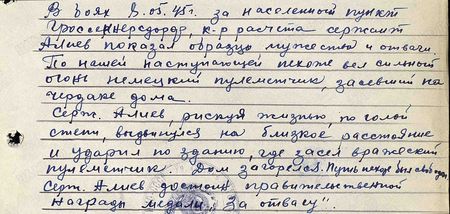 В боях 8.05.45г. за населенный пункт
Гроссеннерсдорф, к-р расчета сержант
Алиев показал образцы мужества и отваги.
По нашей наступающей пехоте вел сильный
огонь немецкий пулеметчик, засевший на
чердаке дома.
Серж. Алиев, рискуя жизнью, по голой
степи, выдвинулся на близкое расстояние
и ударил по зданию, где засел вражеский
пулеметчик. Дом загорелся. Путь пехоте был свободен.
Серж. Алиев достоин правительственной
награды медали „За отвагу".